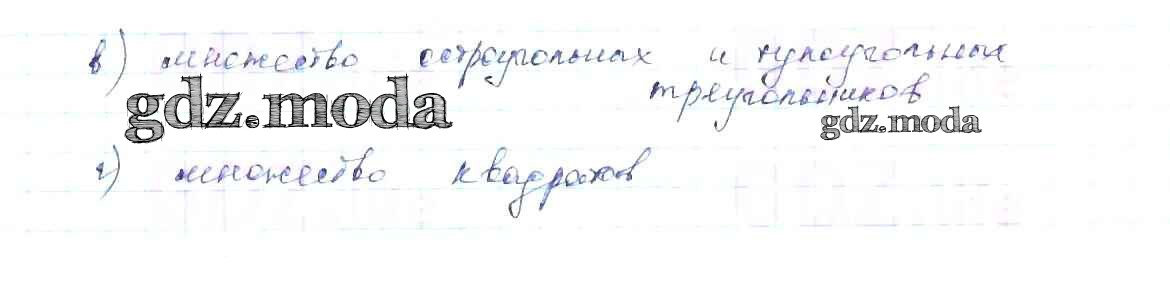 в) множество остроугольных и тупоугольных
треугольников
gdz.moda
gdz.moda
г) множество квадратов